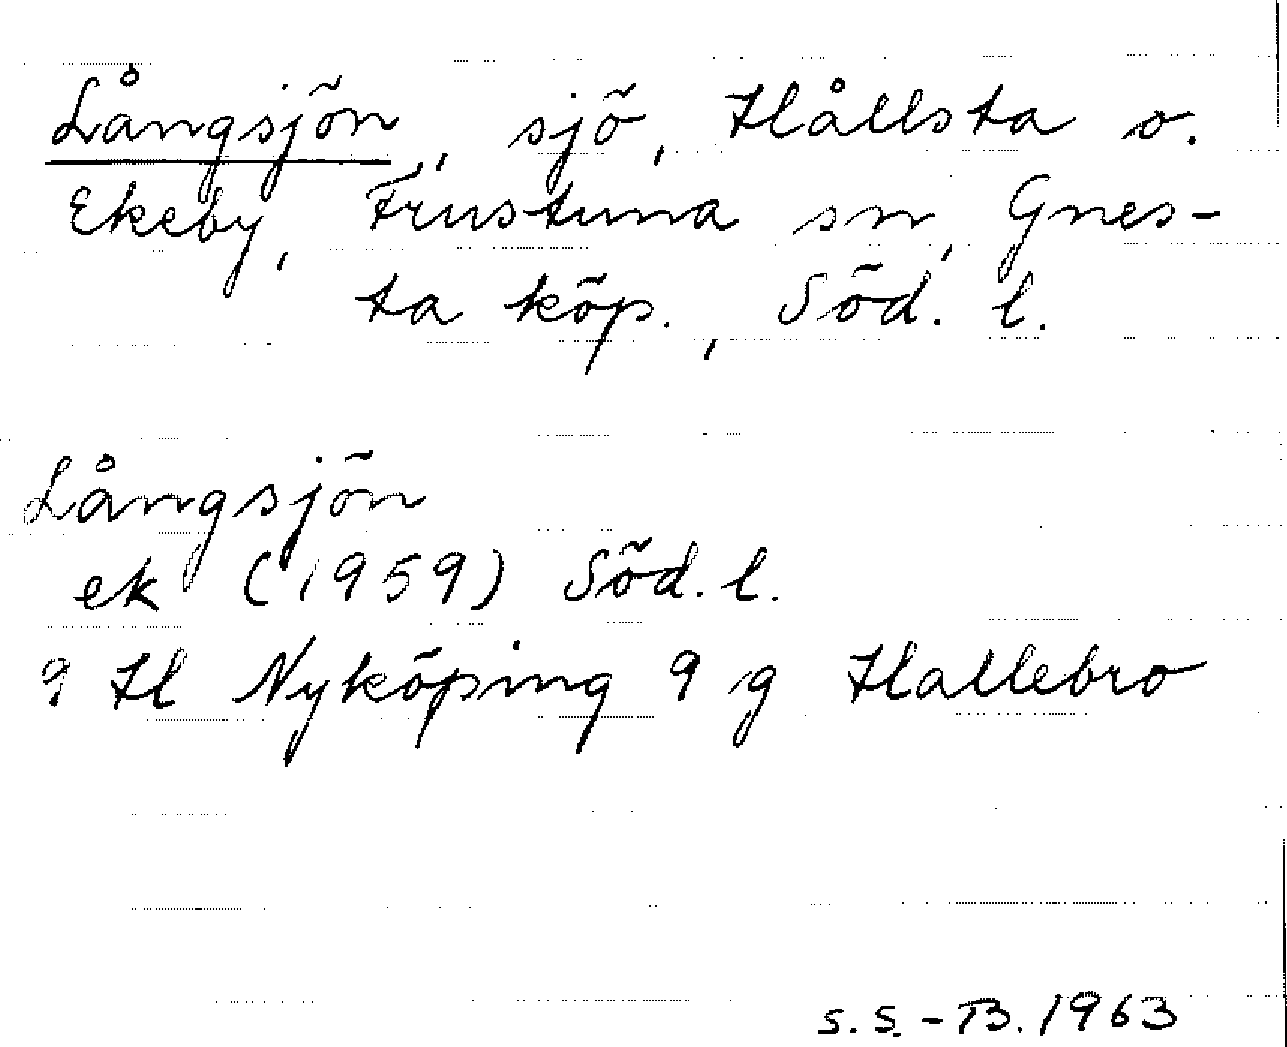 Långsjön, sjö, Hållsta o.
Ekeby, Frustuna sn, Gnes-
ta köp., Söd. l.
Långsjön
ek (1959) Söd. l.
9 H Nyköping 9 g Hallebro
S.S.-B. 1963